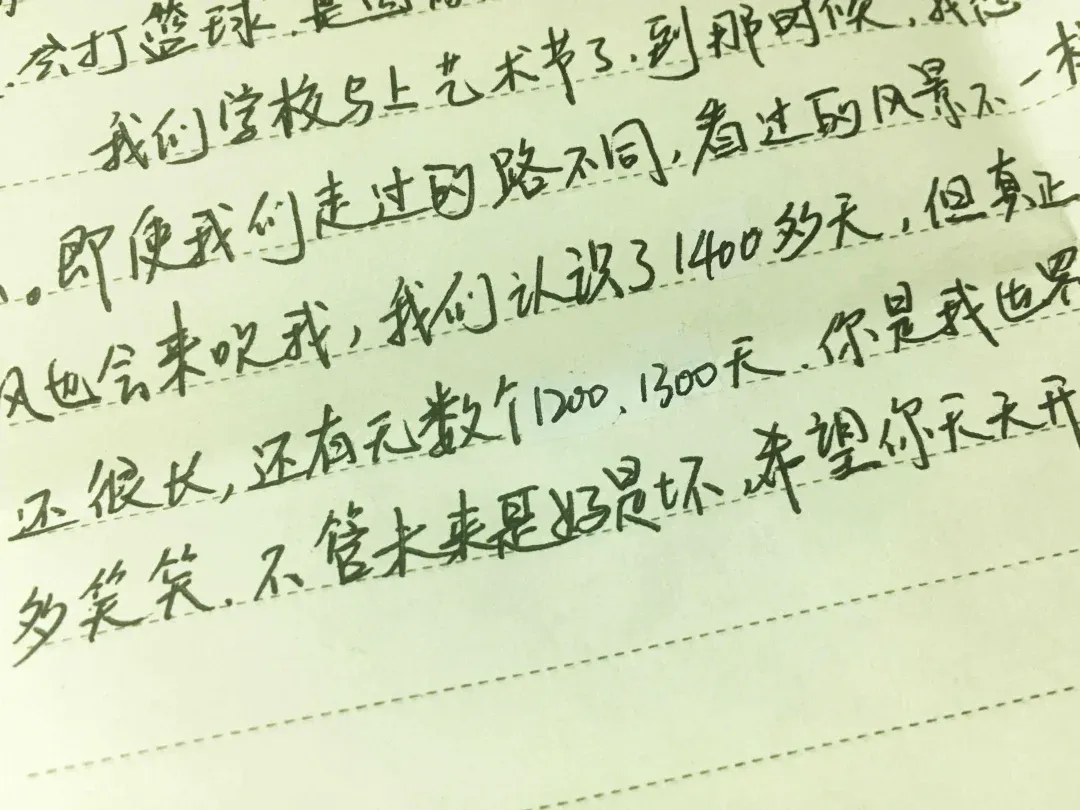 会打篮球.是
我们学校马上艺术节了.到那时候.我
。即使我们走过的路不同,看过的风景不一样
风也会来吹我,我们认识了1400多天,但真正
还很长,还有无数个1200、1300天.你是我世界
多笑笑.不管未来是好是坏,希望你天天开